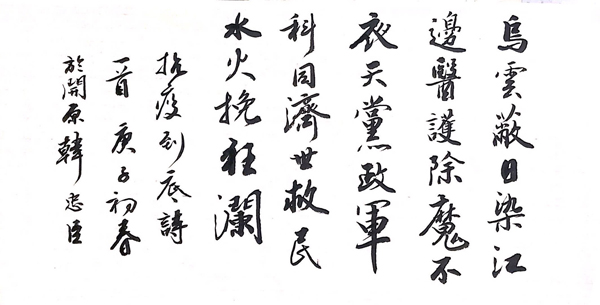 烏雲蔽日染江
邊醫護除魔不
衣天黨政軍
科同濟世救民
水火挽狂瀾
抗疫到底詩
一首庚子初春
於開原韓忠臣